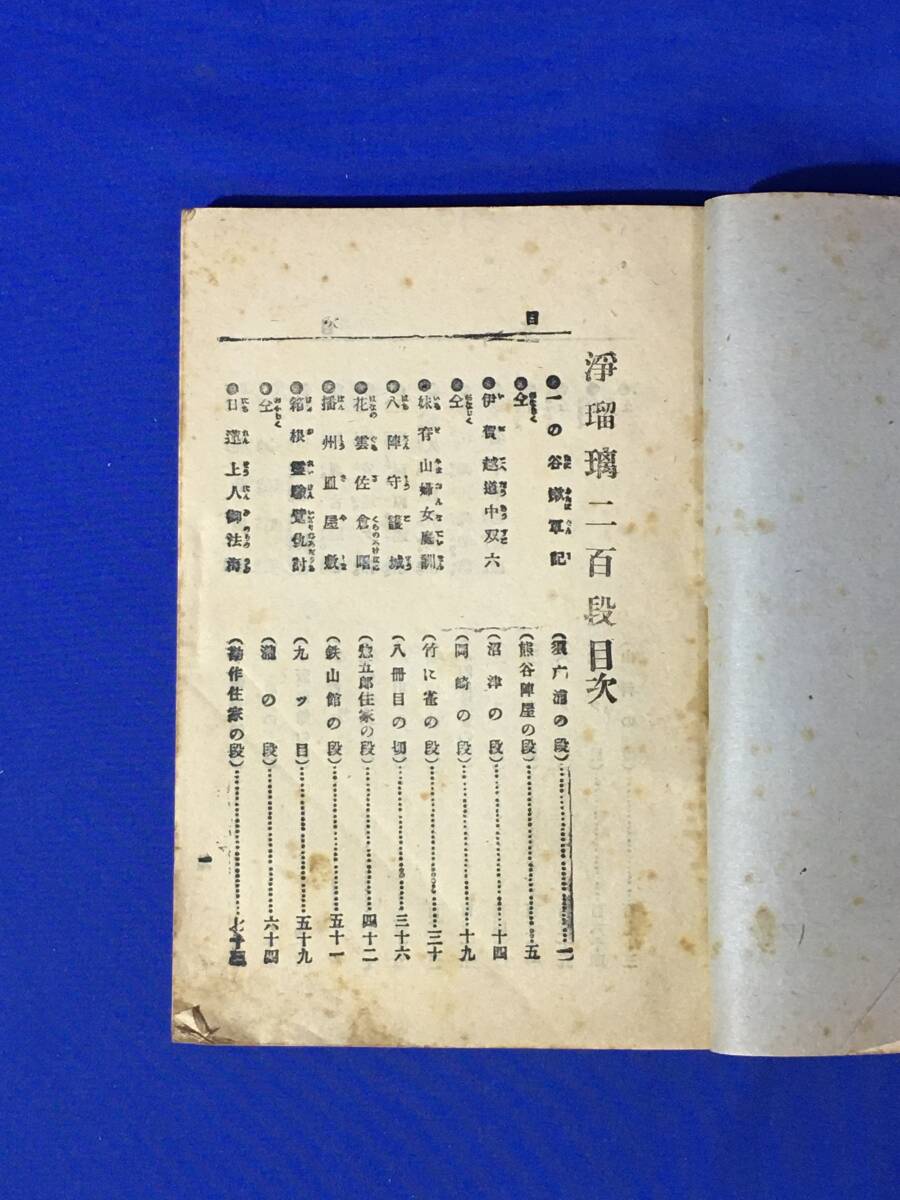 淨瑠璃二百段目次
目次
●一の谷嫩軍記（須广浦の段）…一
●仝（熊谷陣屋の段）…五
●伊賀越道中双六（沼津の段）…十四
●仝（岡崎の段）…十九
●妹脊山婦女庭訓（竹に雀の段）…三十
●八陣守護城（八冊目の切）…三十六
●花雲佐倉曙（惣五郎住家の段）…四十二
●播州皿屋敷（鉄山館の段）…五十一
●箱根靈驗躄仇討（九ッ目）…五十九
●仝（瀧の段）…六十四
●日蓮上人御法海（勘作住家の段）…七十
一